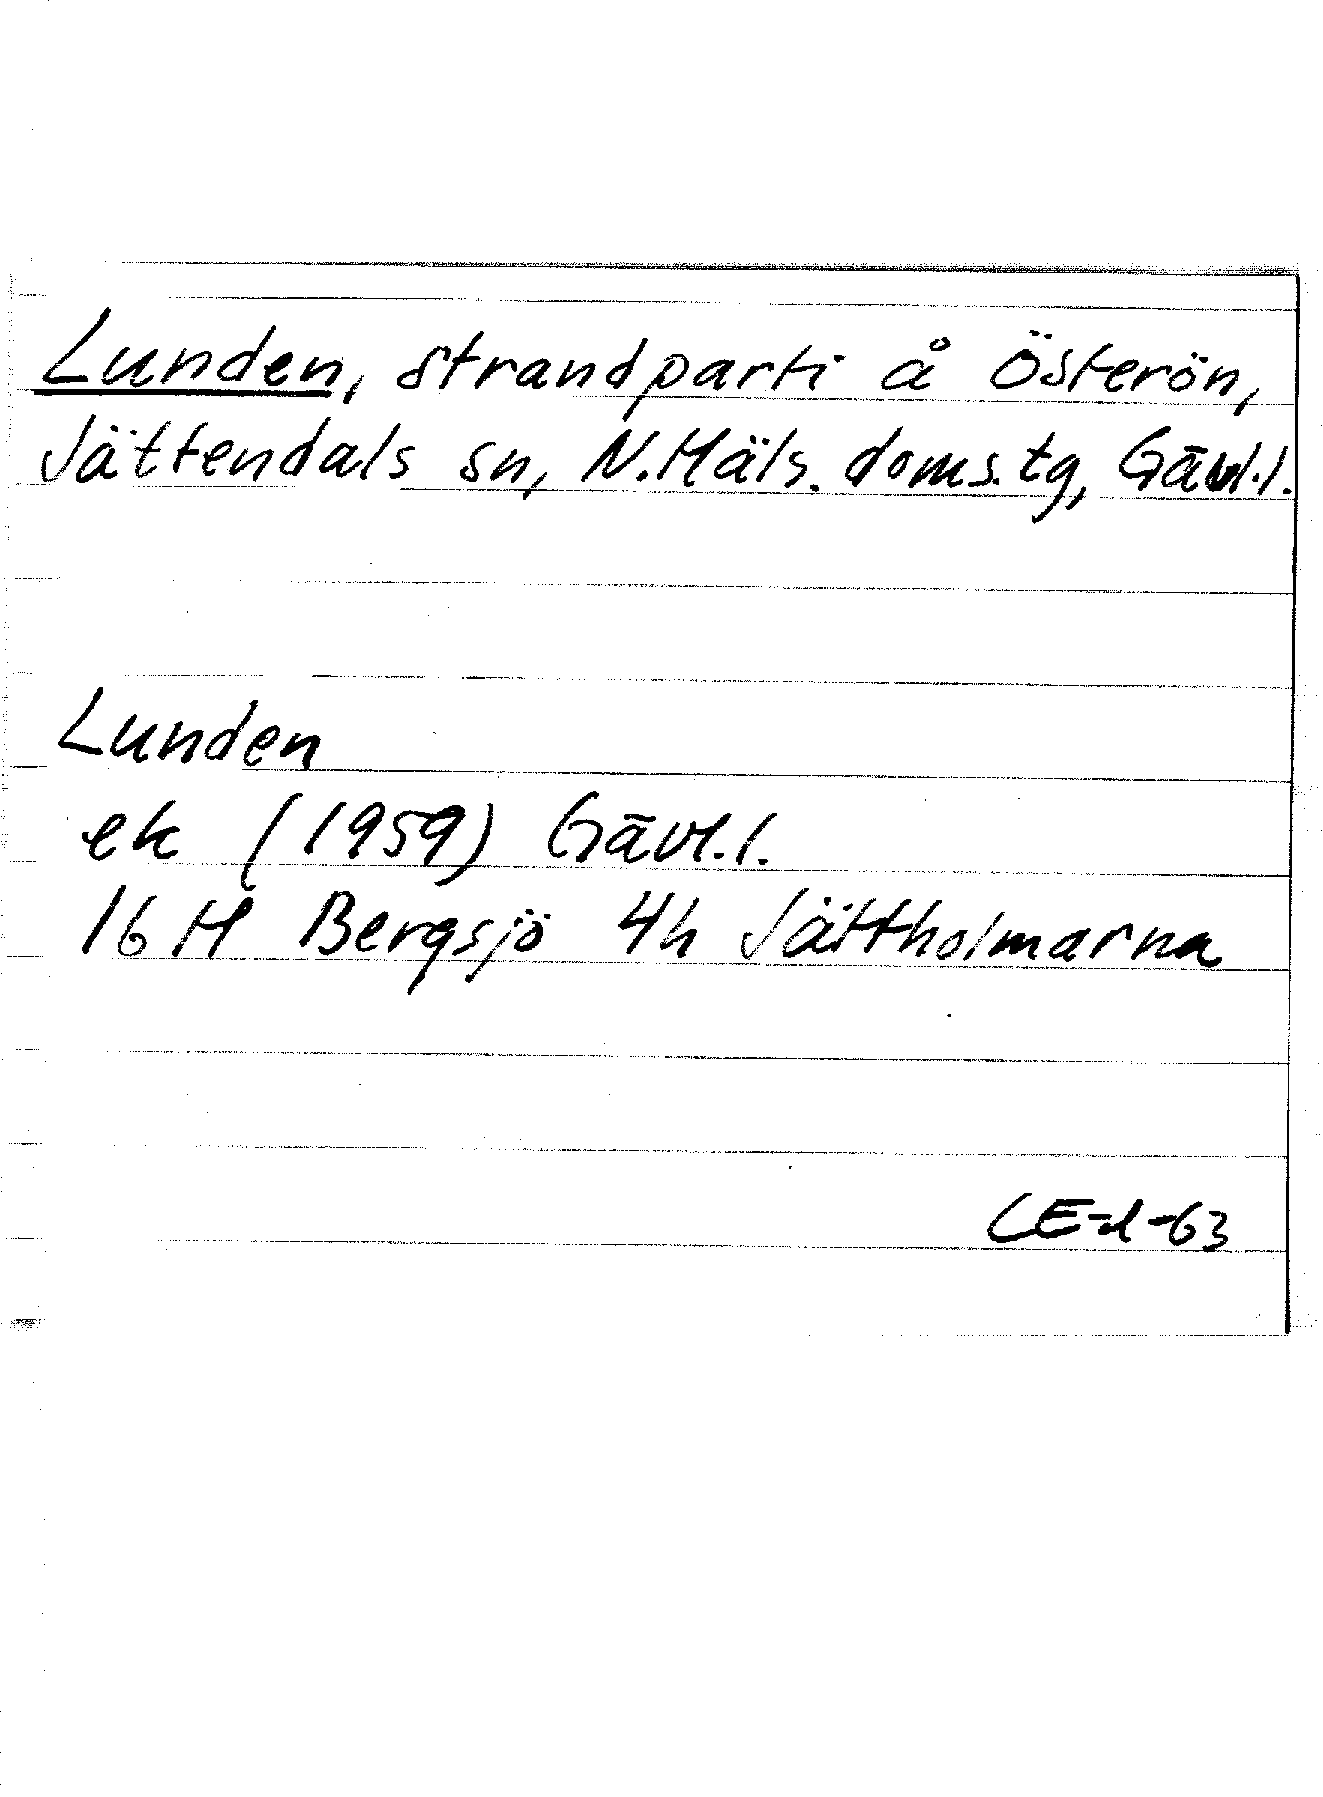 Lunden, strandparti å Österön,
Jättendals sn, N.Häls. doms. tg, Gävl.l.
Lunden
ek (1959) Gävl.l.
16 H Bergsjö 4h Jättholmarna
LE-d-63